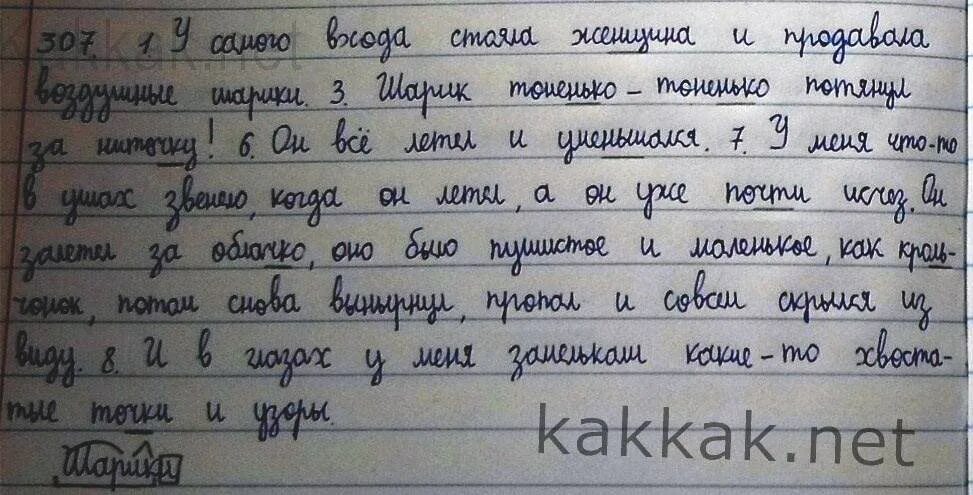 307. 1. У самого входа стояла женщина и продавала
воздушные шарики. 3. Шарик тоненько-тоненько потянул
за ниточку! 6. Он всё летел и уменьшался. 7. У меня что-то
в ушах звенело, когда он летел, а он уже почти исчез. Он
залетел за облачко, оно было пушистое и маленькое, как кроль-
чонок, потом снова вынырнул, пропал и совсем скрылся из
виду. 8. И в глазах у меня замелькали какие-то хвоста-
тые точки и узоры.
kakkak.net
Шарики